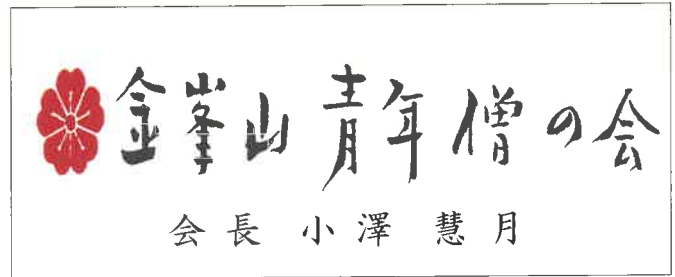 金峯山青年僧の会
会長 小澤 慧月